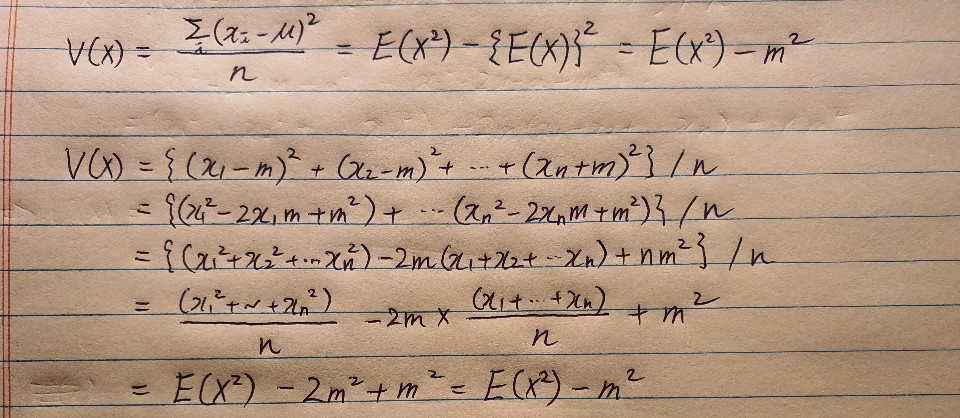 V(X) = Σᵢ(xᵢ-μ)² / n = E(X²) - {E(X)}² = E(X²) - m²
V(X) = {(x₁-m)² + (x₂-m)² + … + (xₙ+m)²} / n
= {(x₁²-2x₁m+m²) + … (xₙ²-2xₙm+m²)} / n
= {(x₁²+x₂²+…xₙ²) - 2m(x₁+x₂+…xₙ) + nm²} / n
= (x₁²+~+xₙ²) / n - 2m × (x₁+…+xₙ) / n + m²
= E(X²) - 2m² + m² = E(X²) - m²